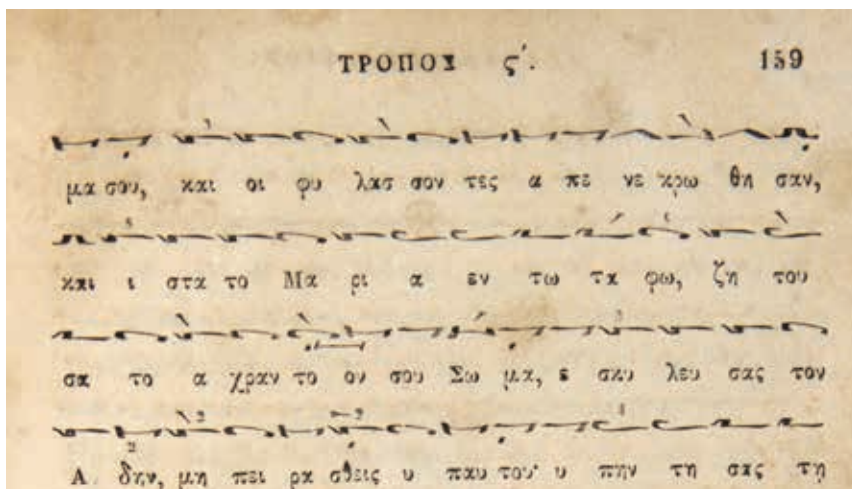 ΤΡΟΠΟΣ ς΄. 159
μα σου, και οι φυ λασ σον τες α πε νε κρω θη σαν,
και ι στα το Μα ρι α εν τω τα φω, ζη του
σα το α χραν το ον σου Σω μα, ε σκυ λευ σας τον
Α δην, μη πει ρα σθεις υ παυ του· υ πην τη σας τη